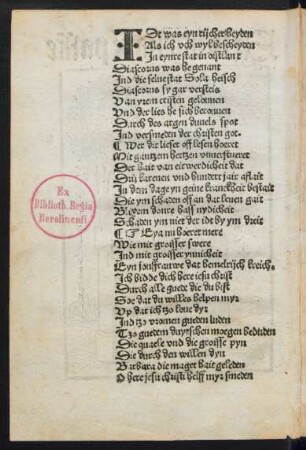 IDt was eyn rijcher heyden
Als ich vch wyl bescheyden
In eynre stat in oystlant
Diascorus was he genant
Ind die selue stat Sola heisch
Diascorus sy gar
Van yrem cristen gelouuen
Vnd der lies he sich berouuen
Durch des argen duuels spot
Ind versmeden der christen got.
¶ Wer die lieser off lesen hoeret
Mit gantzem hertzen
Der hait van eirwerdicheit dat
Dru karenen vnd hundert jair afflait
In dem dage yn geine kranckheit bestait
Die ym schaden off an dat leuen gait
Blixem donre hass nydicheit
Schaden ym niet der idt by ym dreit
¶ Eya nu hoeret mere
Wie mit groisser swere
Ind mit groisser ynnicheit
Eyn ionffrauwe dat hemelrijch
Ich bidde dich here iesu christ
Durch alle guede die du bist
Soe dat du willes helpen myr
Vp dat ich tzo loue dyr
Ind tzo vromen gueden luden
Tzo guedem duytschen moegen beduden
Die quaele vnd die groisse pyn
Die durch den willen dyn
Barbara die maget hait geleden
O here jesu christi helff myr smeden
Ex
Biblioth. Regia
Berolinensi.